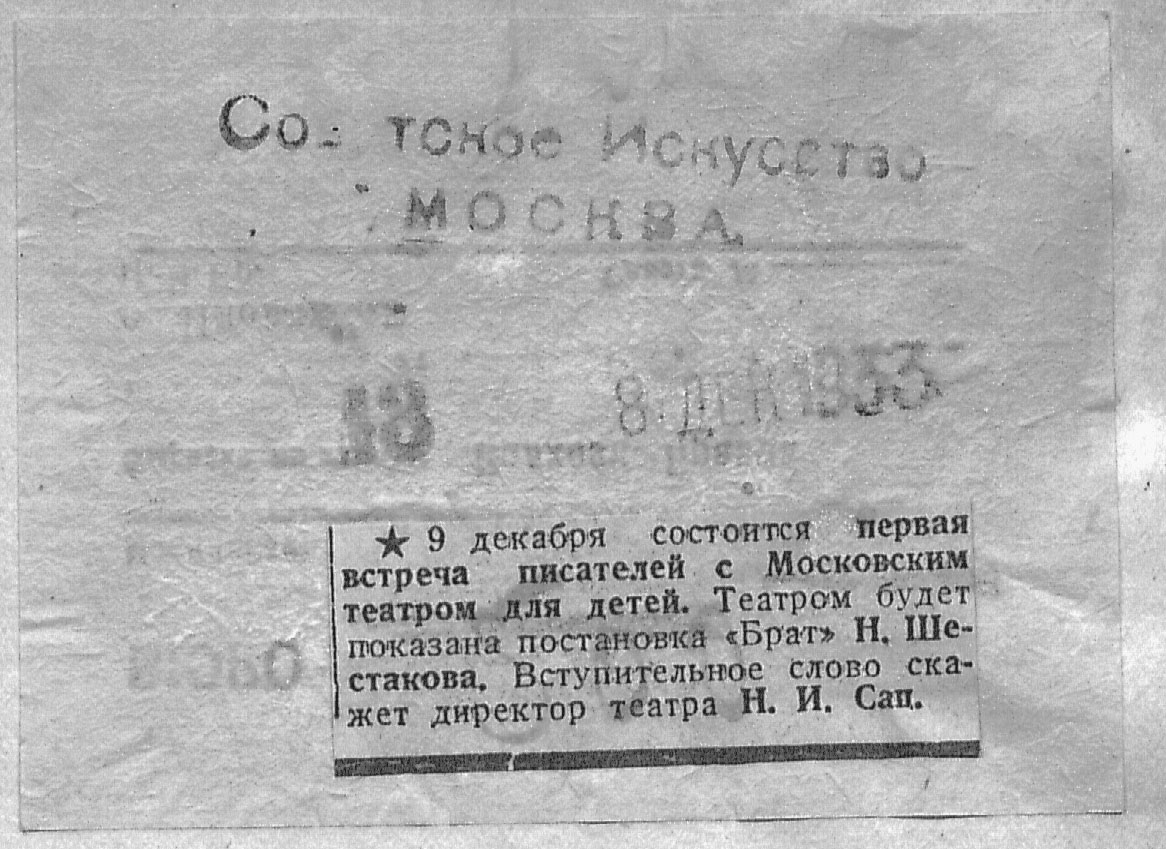 Искусство
МОСКВА
8 ДЕК 1933
★ 9 декабря состоится первая
встреча писателей с Московским
театром для детей. Театром будет
показана постановка «Брат» Н. Ше-
стакова. Вступительное слово ска-
жет директор театра Н. И. Сац.